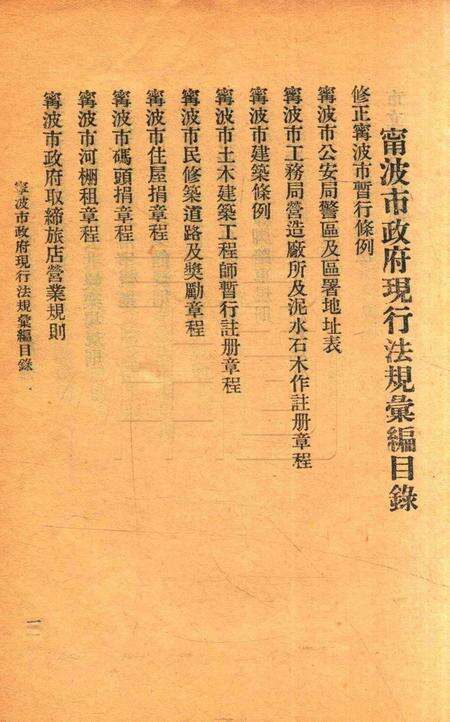 甯波市政府現行法規彙編目錄
修正甯波市暫行條例
甯波市公安局警區及區署地址表
甯波市工務局營造廠所及泥水石木作註册章程
甯波市建築條例
甯波市土木建築工程師暫行註册章程
甯波市民修築道路及奬勵章程
甯波市住屋捐章程
甯波市碼頭捐章程
甯波市河棚租章程
甯波市政府取締旅店營業規則
甯波市政府現行法規彙編目錄
一